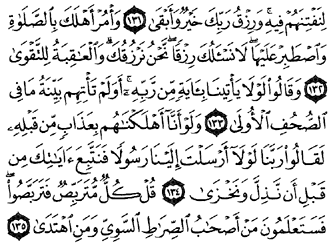 لِنَفْتِنَهُمْ فِيهِ ۚ وَرِزْقُ رَبِّكَ خَيْرٌ وَأَبْقَىٰ ﴿١٣١﴾ وَأْمُرْ أَهْلَكَ بِالصَّلَوٰةِ
وَاصْطَبِرْ عَلَيْهَا ۖ لَا نَسْـَٔلُكَ رِزْقًا ۖ نَّحْنُ نَرْزُقُكَ ۗ وَالْعَٰقِبَةُ لِلتَّقْوَىٰ
﴿١٣٢﴾ وَقَالُوا لَوْلَا يَأْتِينَا بِـَٔايَةٍ مِّن رَّبِّهِ ۚ أَوَلَمْ تَأْتِهِم بَيِّنَةُ مَا فِى
الصُّحُفِ الْأُولَىٰ ﴿١٣٣﴾ وَلَوْ أَنَّا أَهْلَكْنَٰهُم بِعَذَابٍ مِّن قَبْلِهِ
لَقَالُوا رَبَّنَا لَوْلَا أَرْسَلْتَ إِلَيْنَا رَسُولًا فَنَتَّبِعَ ءَايَٰتِكَ مِن
قَبْلِ أَن نَّذِلَّ وَنَخْزَىٰ ﴿١٣٤﴾ قُلْ كُلٌّ مُّتَرَبِّصٌ فَتَرَبَّصُوا ۖ
فَسَتَعْلَمُونَ مَنْ أَصْحَٰبُ الصِّرَٰطِ السَّوِىِّ وَمَنِ اهْتَدَىٰ ﴿١٣٥﴾